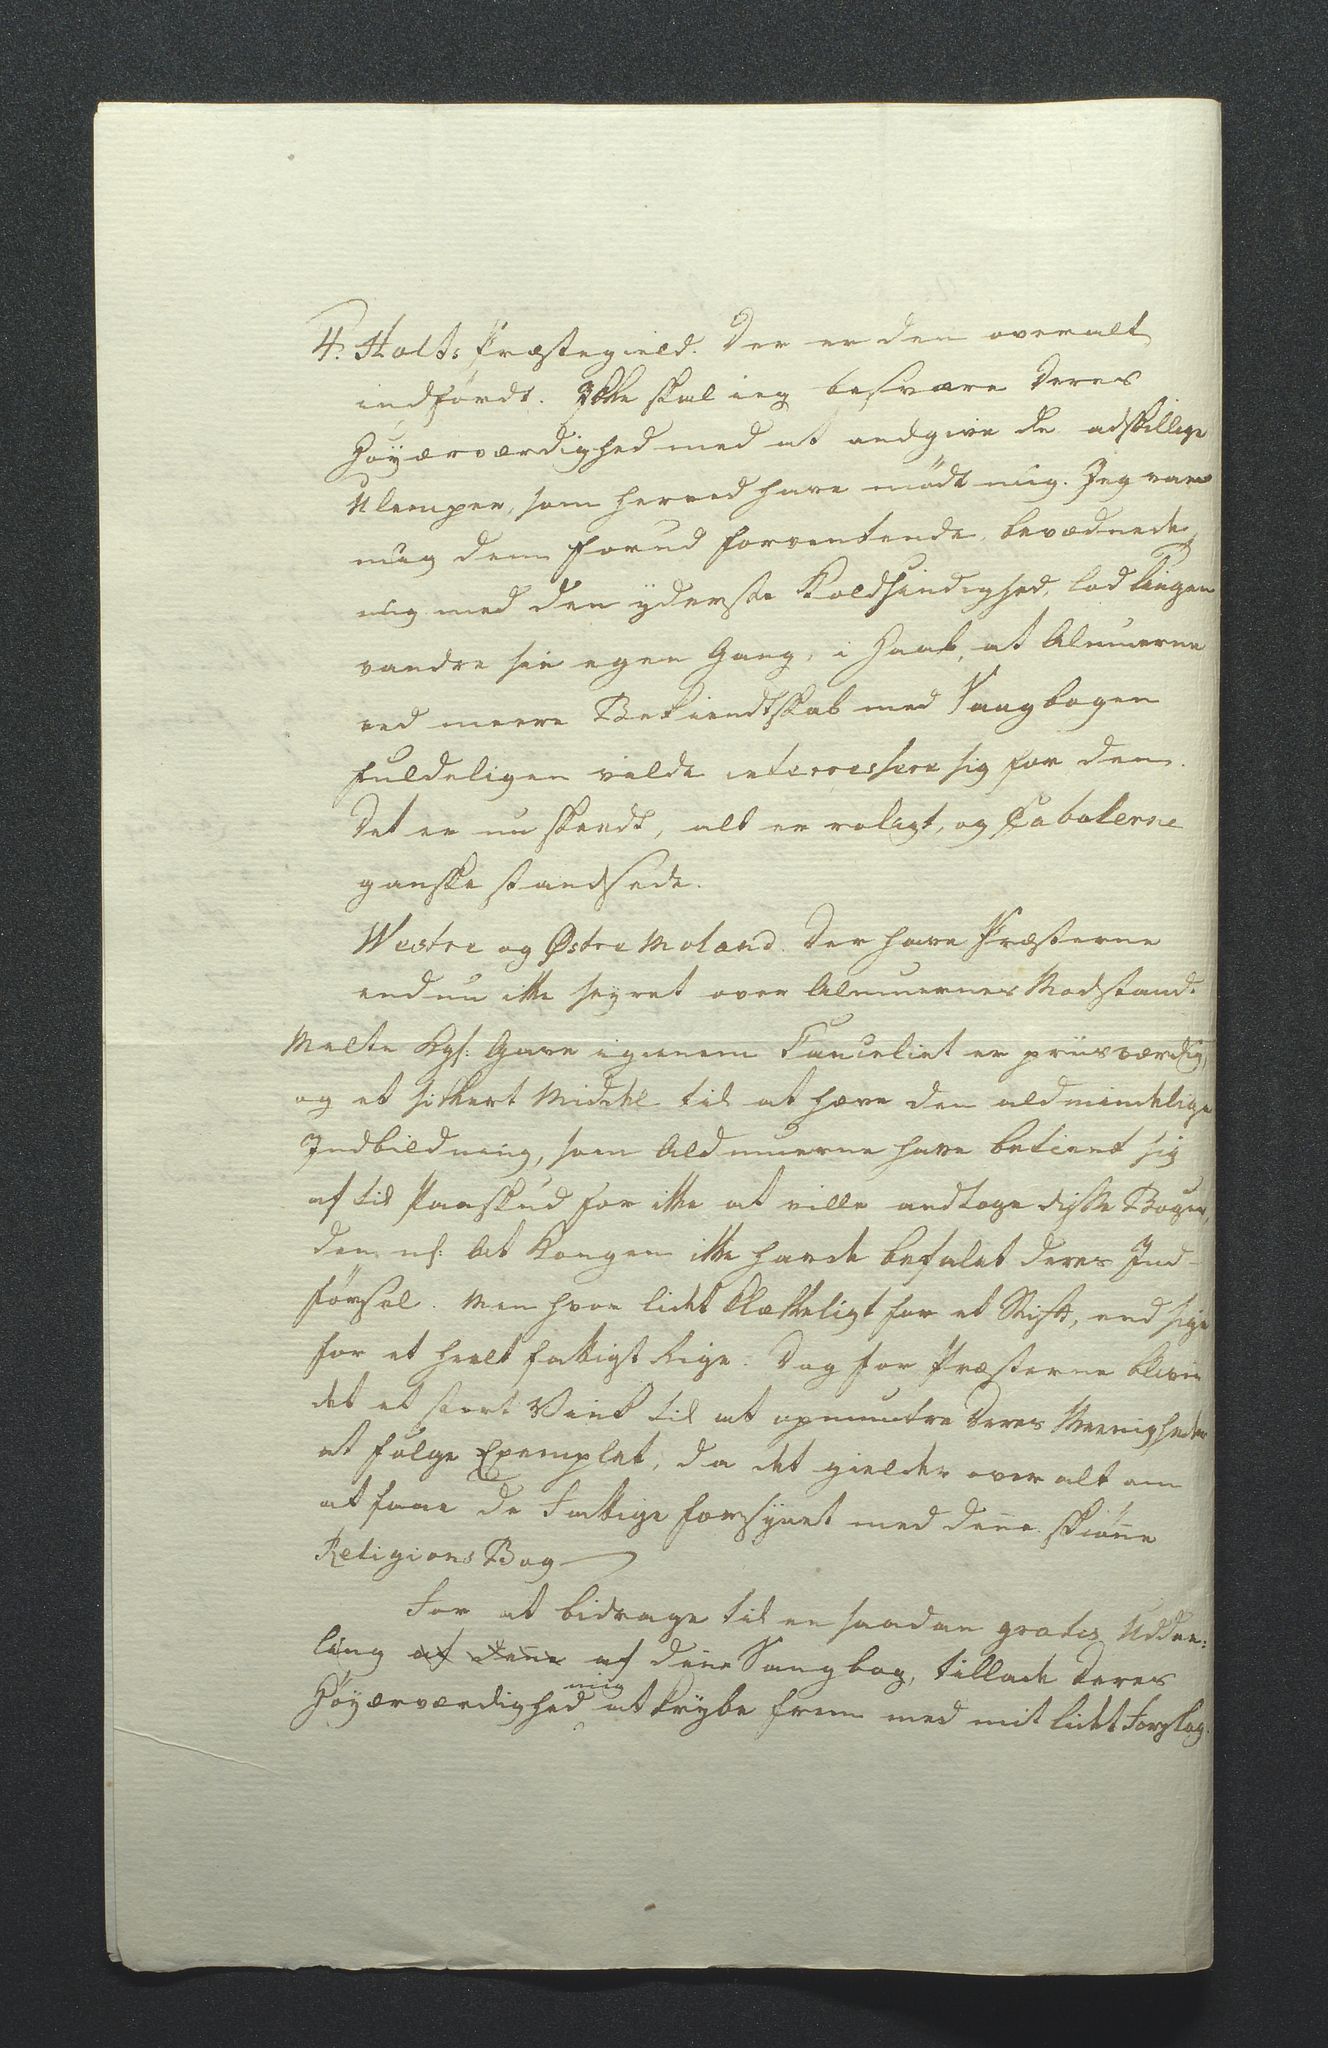 4. Holts Præstegield. Der er den overalt
indfördt. Ikke skal ieg besvære Deres
Höyærværdighed med at andgive de adskillige
Ulemper, som herved have mödt mig. Jeg var
mig dem forud forventende, bevædnede
mig med den yderste Koldsindighed, lod tingen
vandre sin egen Gang, i Haab, at Almuerne
ved meere Bekiendtskab med Sangbogen
fuldeligen vilde interressere sig for den.
Det er nu skeedt, alt er roligt, og Cabalerne
ganske standsede.
Westre og Østre Moland. Der have Præsterne
endnu ikke seyret over Almuernes Modstand.
Malte Kgs: Gave igienem Canceliet er priisværdig,
og et sikkert Middel til at hæve den aldmindelige
Indbildning, som Aldmuerne have betient sig
af til Paaskud for ikke at ville andtage disse Bøger,
den nl: At Kongen ikke havde befalet deres Ind-
försel. Men hvor lidet klækkeligt for et Stift, end sige
for et heelt fattigt Rige. Dog for Præsterne bliver
det et stort Vink til at opmuntre deres Meenigheder
at fölge Exemplet, da det gielder over alt om
at faae de Fattige forsynet med deñe skiöñe
Religions Bog
For at bidrage til en saadan gratis Uddee:
ling af deñe af deñe Sangbog, tillade Deres
Höyærværdighed mig at krybe frem med mit lidet Forslag.